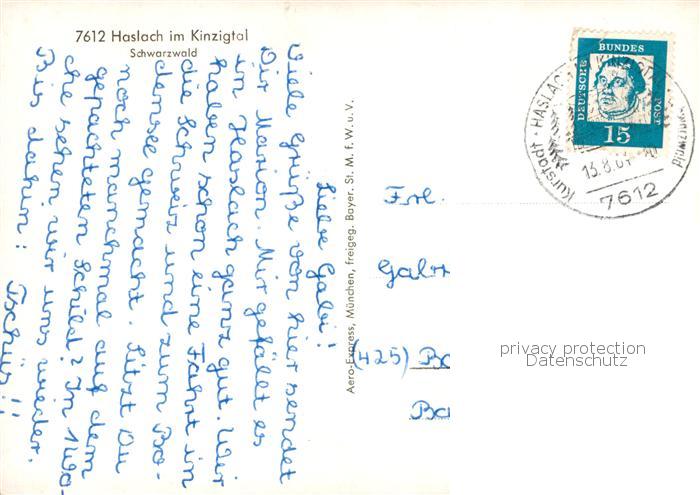 7612 Haslach im Kinzigtal
Schwarzwald
Liebe Gabi!
Viele Grüße von hier sendet
Dir Marion. Mir gefällt es
in Haslach ganz gut. Wir
haben schon eine Fahrt in
die Schweiz und zum Bo-
densee gemacht. Sitzt Du
noch manchmal auf dem
gepachteten Schild? In 1 Wo-
che sehen wir uns wieder.
Bis dahin!
Tschüs!!
Aero-Express, München, freigeg. Bayer. St. M. f. W. u. V.
DEUTSCHE BUNDES POST
15
Kurstadt · HASLACH IM KINZIGTAL · Schwarzwald
13.8.64
7612
Frl.
(425) Bo
privacy protection
Datenschutz